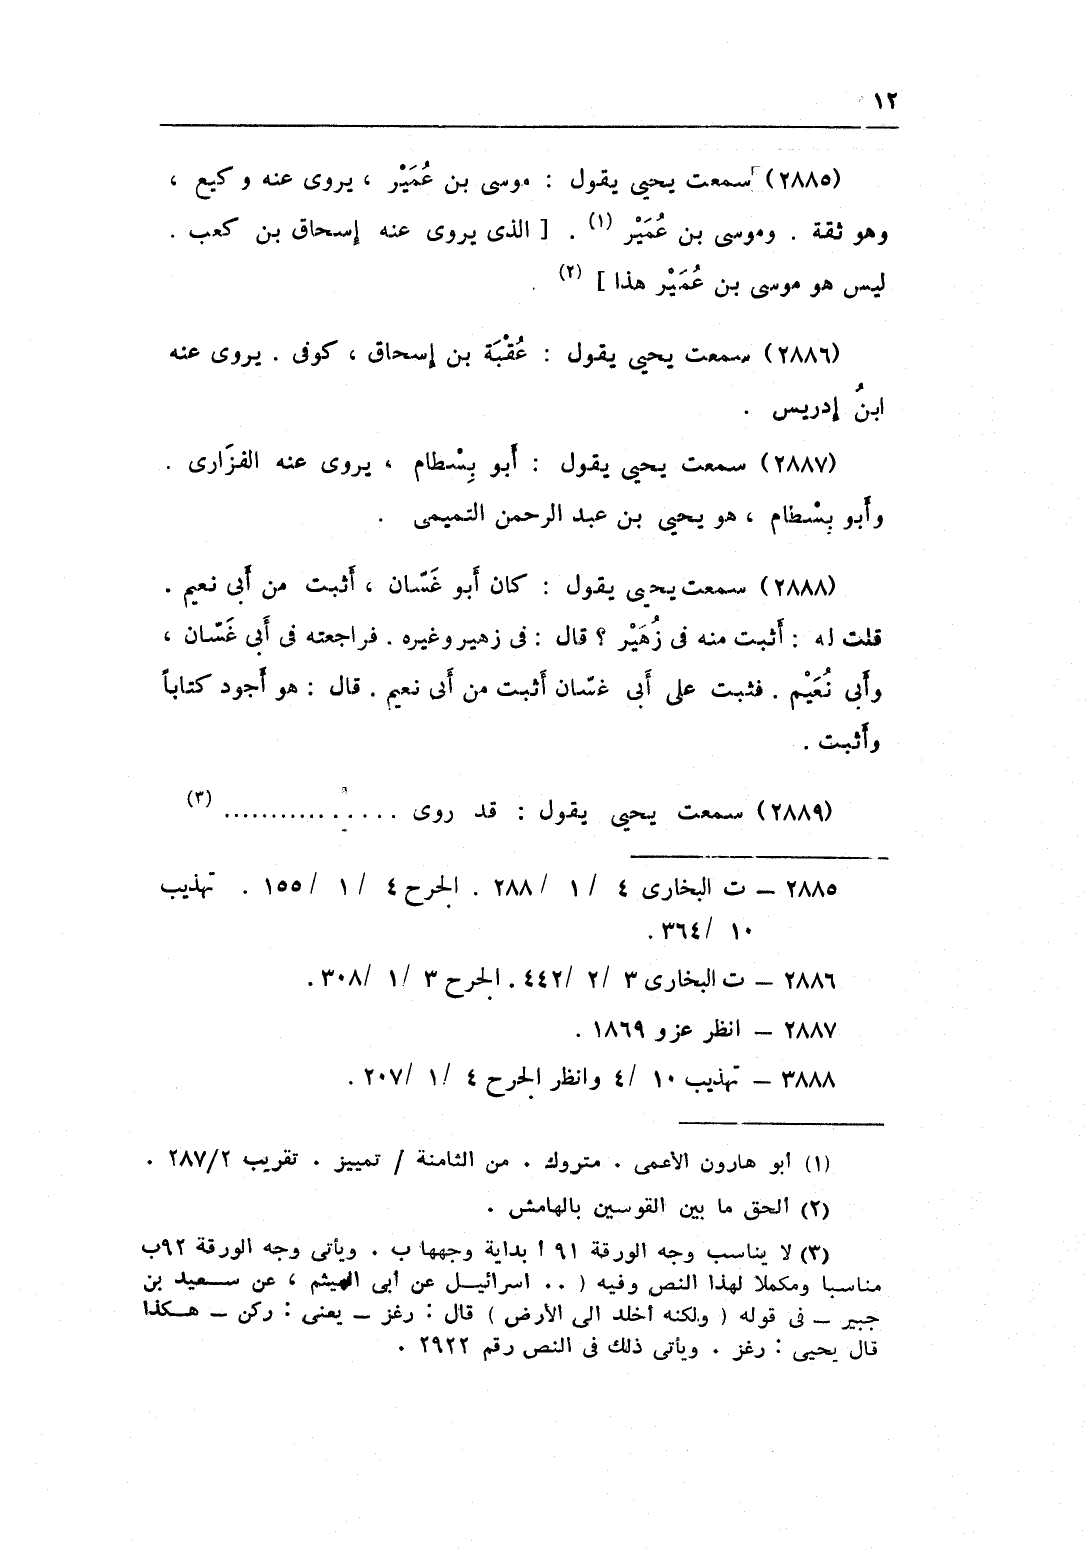 ١٢
(٢٨٨٥) سمعت يحيى يقول : موسى بن عُمَيْر ، يروى عنه وكيع ،
وهو ثقة . وموسى بن عُمَيْر (١) . [ الذى يروى عنه إسحاق بن كعب .
ليس هو موسى بن عُمَيْر هذا ] (٢) .
(٢٨٨٦) سمعت يحيى يقول : عُقْبَة بن إسحاق ، كوفى . يروى عنه
ابنُ إدريس .
(٢٨٨٧) سمعت يحيى يقول : أَبو بِسْطام ، يروى عنه الفَزَارى .
وأَبو بِسْطام ، هو يحيى بن عبد الرحمن التميمى .
(٢٨٨٨) سمعت يحيى يقول : كان أَبو غَسّان ، أَثبت من أَبى نعيم .
قلت له : أَثبت منه فى زُهَيْر ؟ قال : فى زهير وغيره . فراجعته فى أَبى غَسّان ،
وأَبى نُعَيْم . فثبت على أَبى غسّان أَثبت من أَبى نعيم . قال : هو أَجود كتاباً
وأَثبت .
(٢٨٨٩) سمعت يحيى يقول : قد روى ................ (٣)
٢٨٨٥ – ت البخارى ٤ / ١ / ٢٨٨ . الجرح ٤ / ١ / ١٥٥ . تهذيب
١٠ / ٣٦٤ .
٢٨٨٦ – ت البخارى ٣ / ٢ / ٤٤٢ . الجرح ٣ / ١ / ٣٠٨ .
٢٨٨٧ – انظر عزو ١٨٦٩ .
٣٨٨٨ – تهذيب ١٠ / ٤ وانظر الجرح ٤ / ١ / ٢٠٧ .
(١) أبو هارون الأعمى . متروك . من الثامنة / تمييز . تقريب ٢٨٧/٢ .
(٢) ألحق ما بين القوسين بالهامش .
(٣) لا يناسب وجه الورقة ٩١ أ بداية وجهها ب . ويأتى وجه الورقة ٩٢ب
مناسبا ومكملا لهذا النص وفيه ( .. اسرائيل عن أبى الهيثم ، عن سعيد بن
جبير – فى قوله ( ولكنه أخلد الى الأرض ) قال : رغز – يعنى : ركن – هكذا
قال يحيى : رغز . ويأتى ذلك فى النص رقم ٢٩٢٢ .